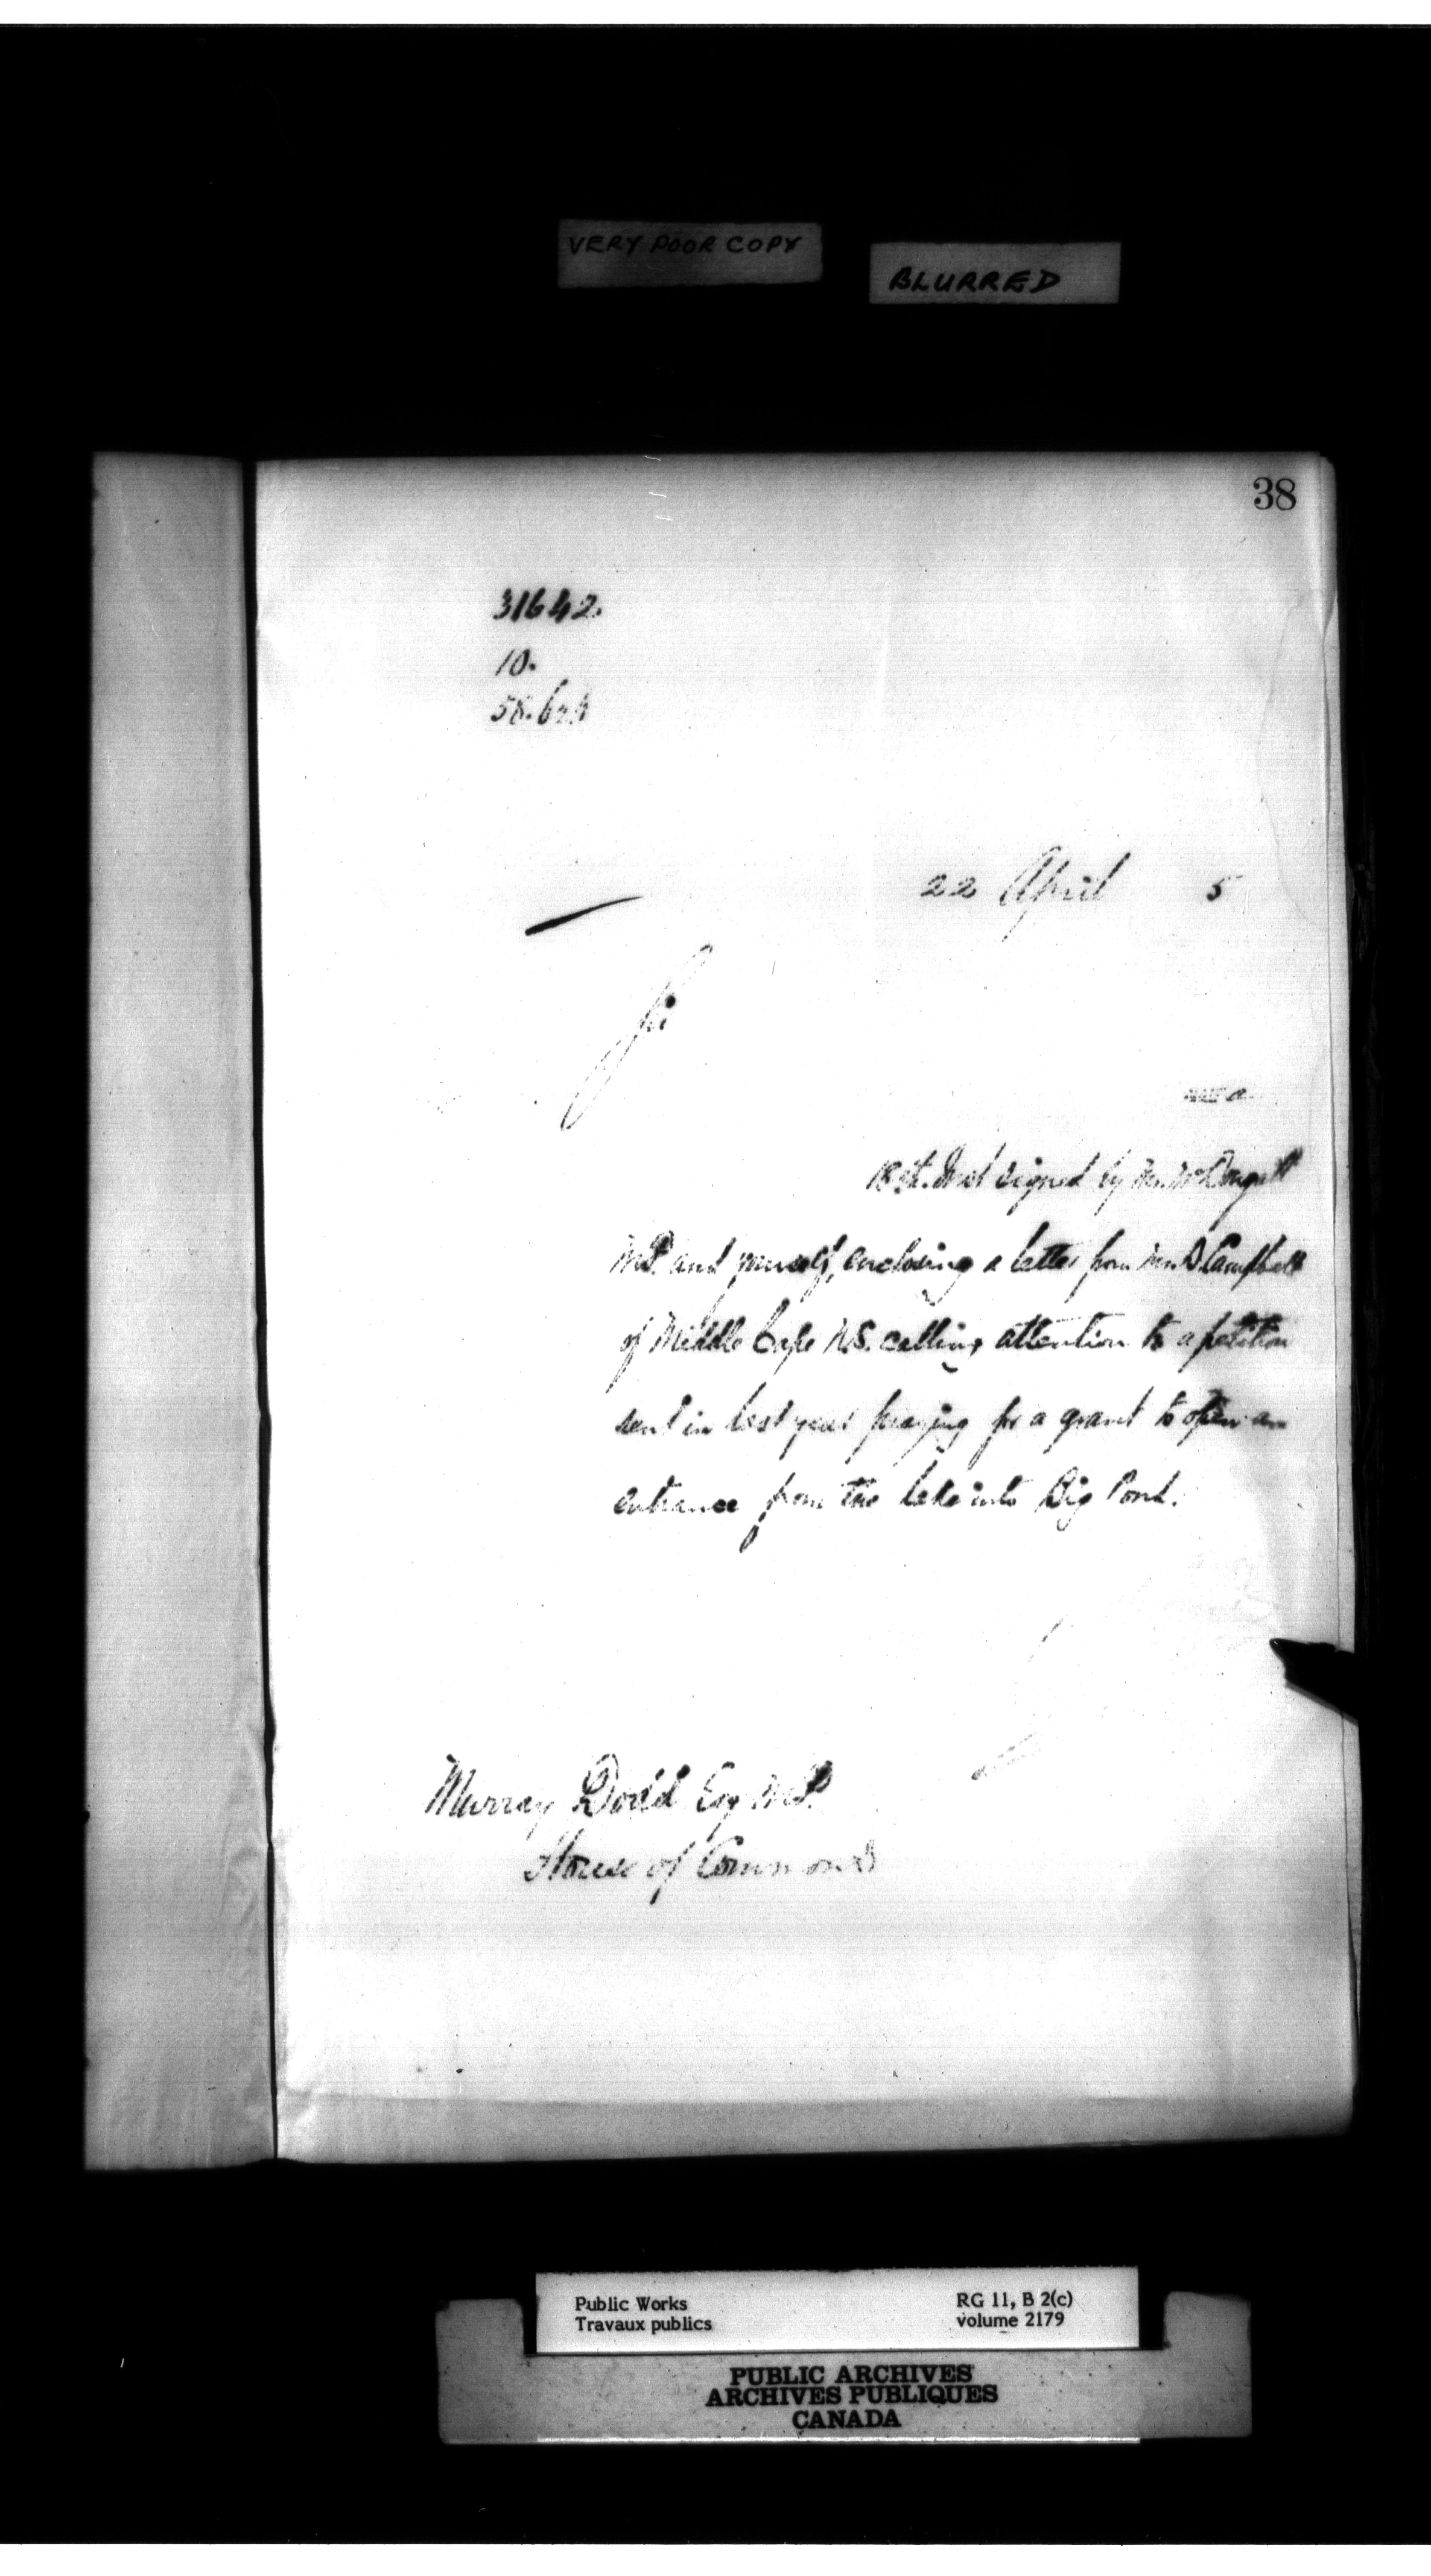 VERY POOR COPY
BLURRED
38
31642.
10.
22 April 5
Sir
18th. Inst signed by Mr. McDougall
M.P. and yourself, enclosing a letter from Mr. D. Campbell
of Middle Cape N.S. calling attention to a petition
sent in last year praying for a grant to open an
entrance from the lake into Big Pond.
Murray Dodd Esq M.P.
House of Commons
Public Works
Travaux publics
RG 11, B 2(c)
volume 2179
PUBLIC ARCHIVES
ARCHIVES PUBLIQUES
CANADA